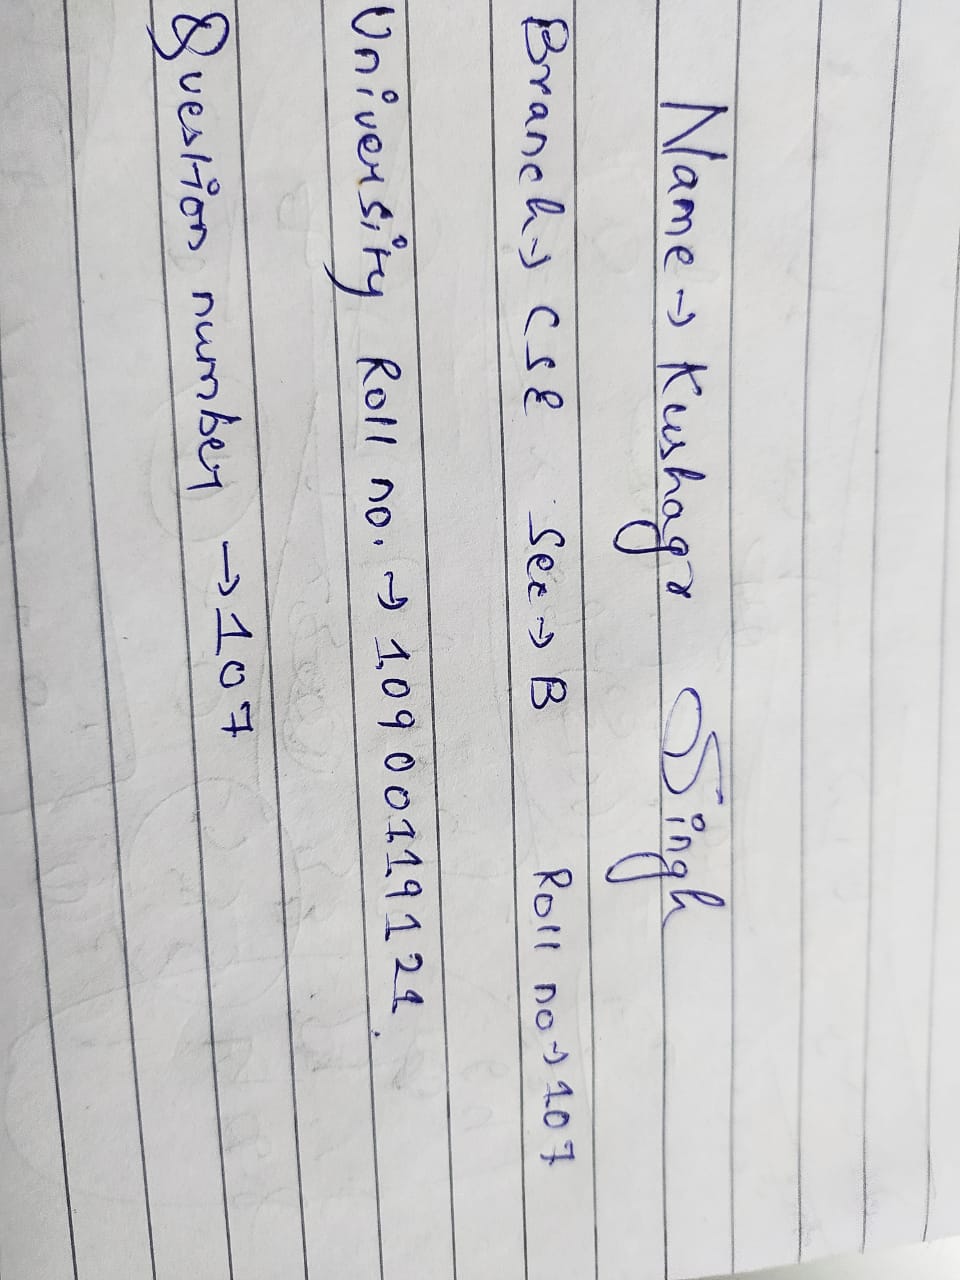 Name → Kushagr Singh
Branch → CSE Sec → B Roll no → 107
University Roll no. → 10900119121.
Question number → 107